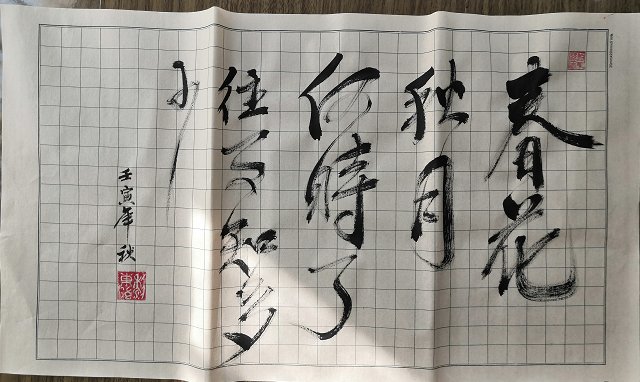 春花
秋月
何時了
往事知多
少
壬寅年秋